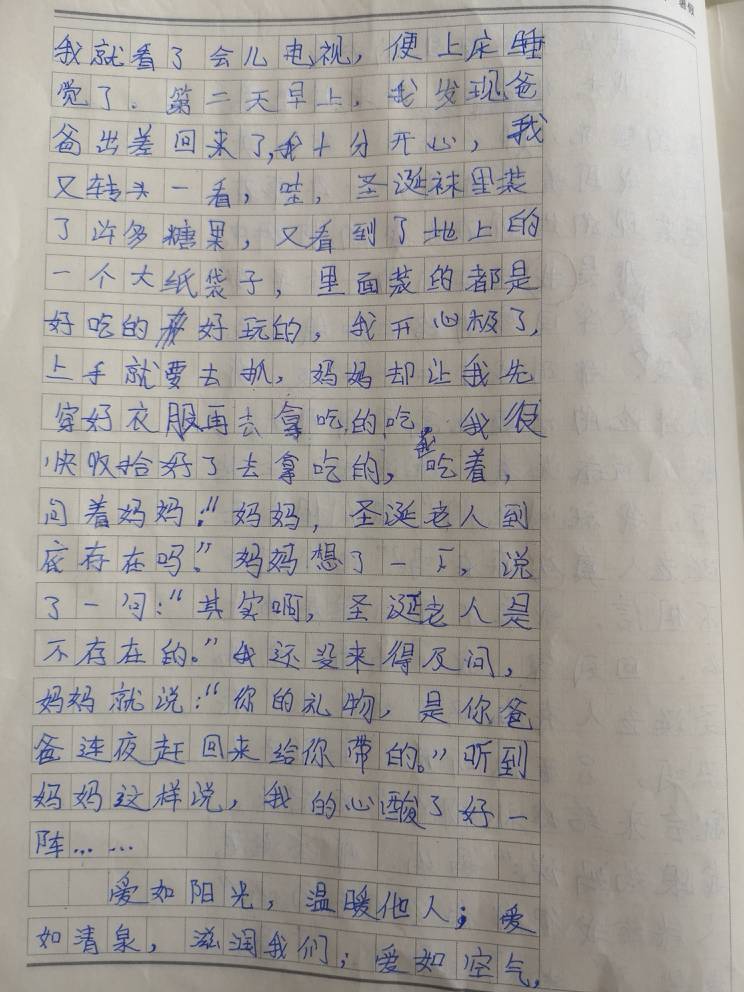 暑假
我就看了会儿电视，便上床睡
觉了．第二天早上，我发现爸
爸出差回来了，我十分开心，我
又转头一看，哇，圣诞袜里装
了许多糖果，又看到了地上的
一个大纸袋子，里面装的都是
好吃的好玩的，我开心极了，
上手就要去抓，妈妈却让我先
穿好衣服再去拿吃的吃．我很
快收拾好了去拿吃的，我吃着，
问着妈妈：“妈妈，圣诞老人到
底存在吗？”妈妈想了一下，说
了一句：“其实啊，圣诞老人是
不存在的。”我还没来得及问，
妈妈就说：“你的礼物，是你爸
爸连夜赶回来给你带的。”听到
妈妈这样说，我的心酸了好一
阵……
爱如阳光，温暖他人；爱
如清泉，滋润我们；爱如空气，